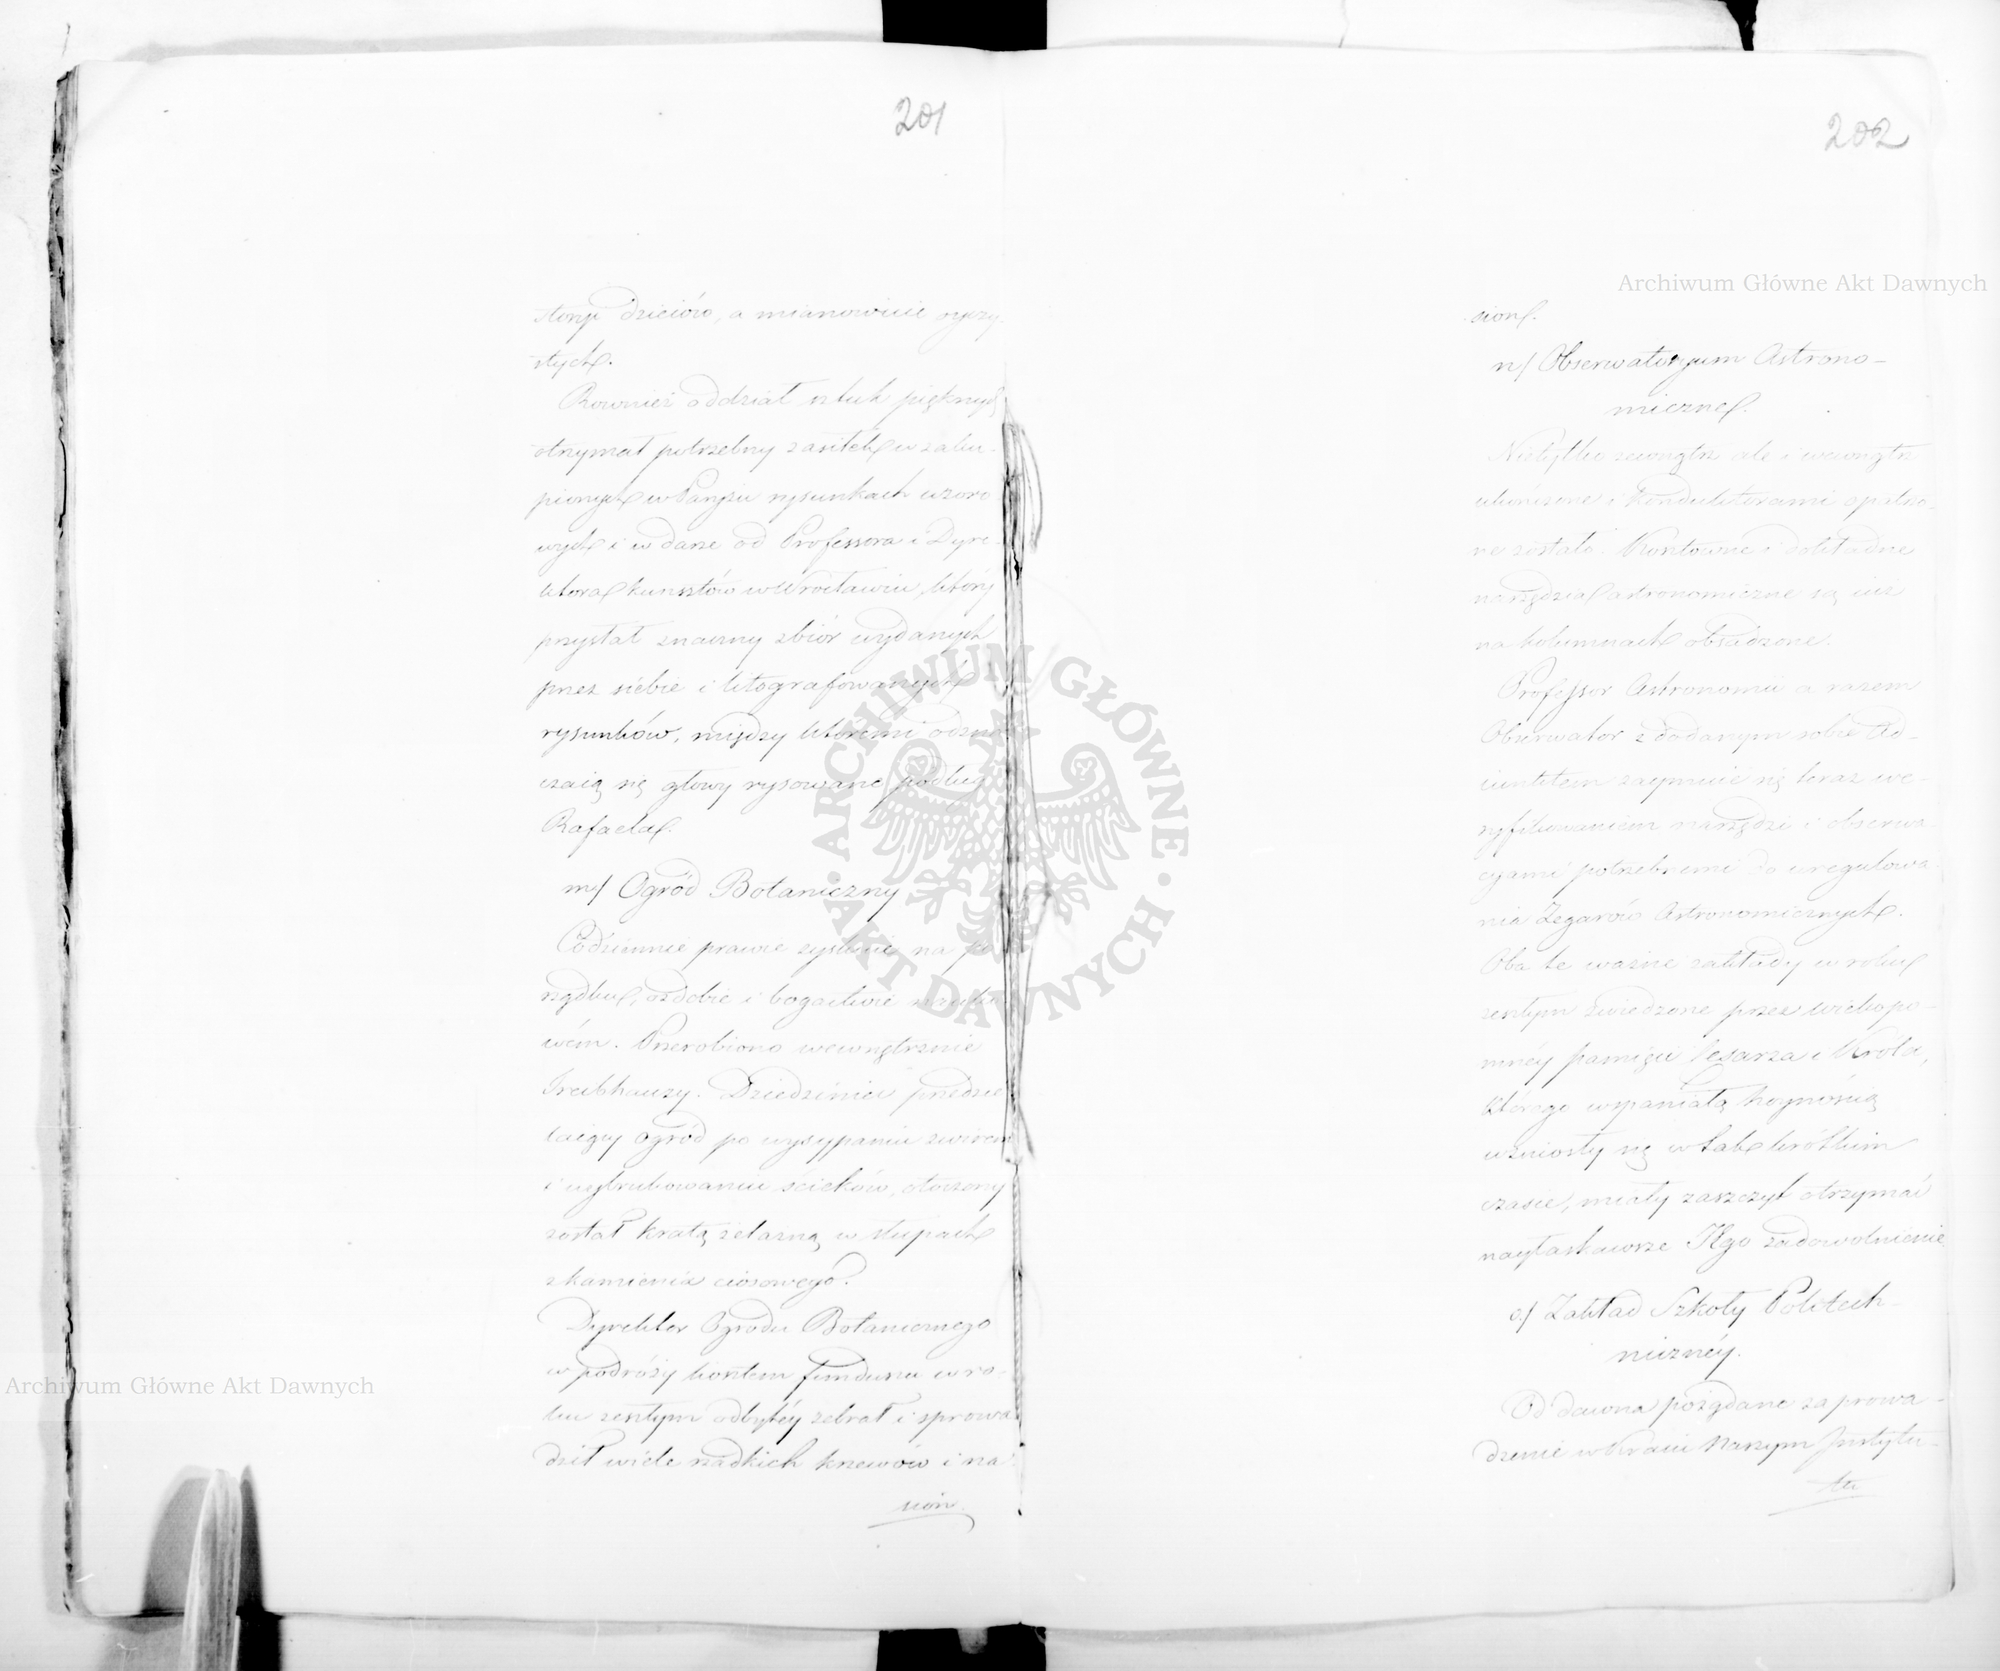 201
storyi dzieiów, a mianowicie oyczy-
stych.
Rownież oddział sztuk pięknych
otrzymał potrzebny zasiłek w zaku-
pionych w Paryżu rysunkach wzoro-
wych i w darze od Professora i Dyre-
ktora kunsztów w Wrocławiu, który
przysłał znaczny zbiór wydanych
przez siebie i litografowanych
rysunków, między któremi odzna-
czaią się głowy rysowane podług
Rafaela.
m/ Ogród Botaniczny
Codziennie prawie zyskuie na po-
rządku, ozdobie i bogactwie nauko-
wém. Przerobiono wewnętrznie
Treibhauzy. Dziedziniec przedzie-
laiący Ogród po wysypaniu zwirem
i wybrukowaniu ścieków, otoczony
został kratą żelazną w słupach
z kamienia ciosowego.
Dyrektor Ogrodu Botanicznego
w podróży kosztem funduszu w ro-
ku zeszłym odbytéy zebrał i sprowa-
dził wiele rzadkich krzewów i na-
sion.
202
sion.
n/ Obserwatoryum Astrono-
miczne.
Nietylko zewnątrz ale i wewnątrz
ukończone i Konduktorami opatrzo-
ne zostało. Kosztowne i dokładne
narzędzia astronomiczne są iuż
na kolumnach obsadzone.
Professor Astronomii a razem
Obserwator z dodanym sobie Ad-
iunktem zaymuie się teraz we-
ryfikowaniem narzędzi i obserwa-
cyami potrzebnemi do uregulowa-
nia Zegarów Astronomicznych.
Oba te ważne zakłady w roku
zeszłym zwiedzone przez wiekopo-
mnéy pamięci Cesarza i Króla,
którego wspaniałą hoynością
wzniosły się w tak krótkim
czasie, miały zaszczyt otrzymać
nayłaskawsze JEgo zadowolnienie
o/ Zakład Szkoły Politech-
nicznéy.
Od dawna pożądane zaprowa-
dzenie w kraiu naszym Instytu-
tu
Archiwum Główne Akt Dawnych
Archiwum Główne Akt Dawnych
ARCHIWUM GŁÓWNE
AKT DAWNYCH